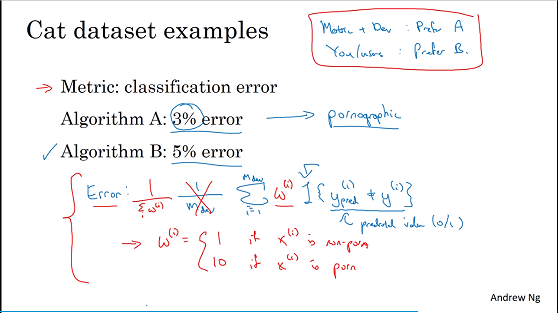 Cat dataset examples
Metric + Dev : Prefer A
You/users : Prefer B.
→ Metric: classification error
Algorithm A: 3% error → pornographic
✓ Algorithm B: 5% error
Error: 1/Σw⁽ⁱ⁾ 1/m_dev Σ_{i=1}^{m_dev} w⁽ⁱ⁾ 1{y_pred⁽ⁱ⁾ ≠ y⁽ⁱ⁾}
predicted value (0/1)
→ w⁽ⁱ⁾ = { 1 if x⁽ⁱ⁾ is non-porn
10 if x⁽ⁱ⁾ is porn
Andrew Ng